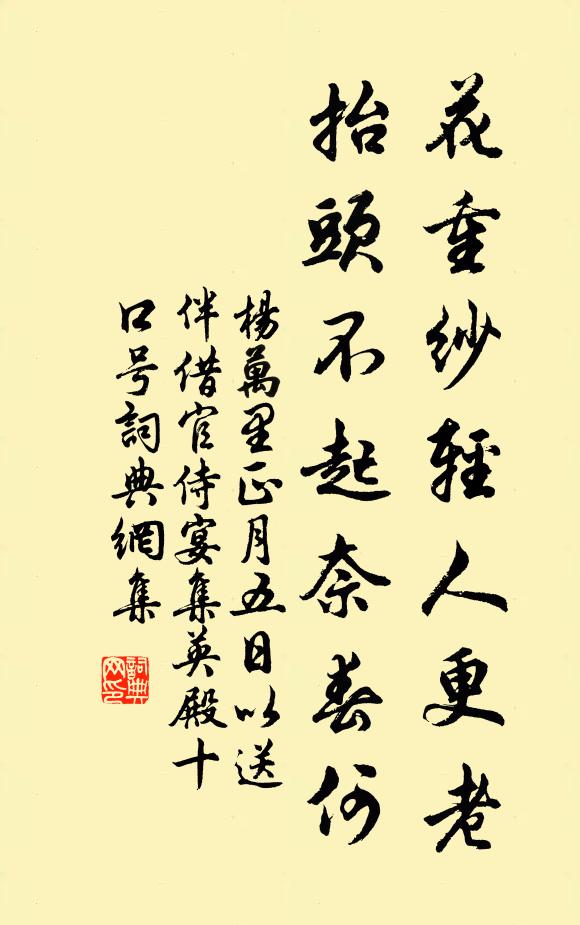 花重紗輕人更老
抬頭不起奈春何
楊萬里正月五日以送
伴借官侍宴集英殿十
口号詞典網集
詞典
网印